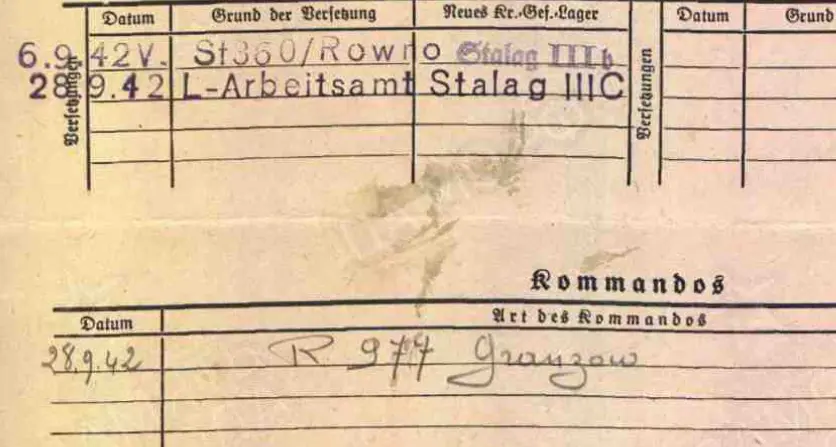 Datum Grund der Versetzung Neues Kr.-Gef.-Lager Datum Grund
6.9.42 V. St360/Rowno Stalag IIIb
28.9.42 L-Arbeitsamt Stalag IIIC
Versetzungen
Versetzungen
Kommandos
Datum Art des Kommandos
28.9.42 R 977 Granzow